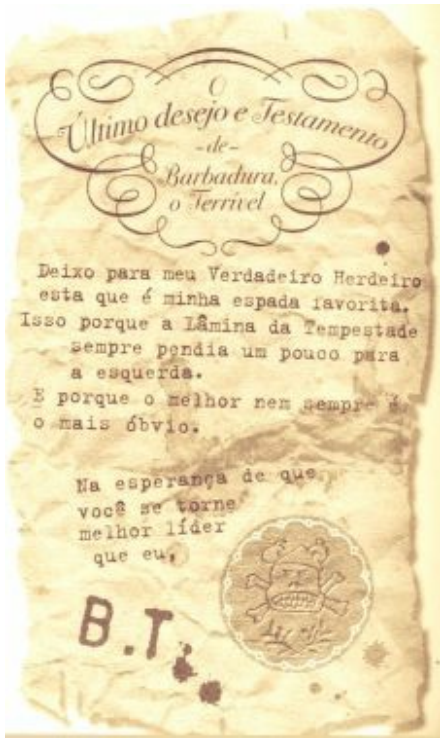 O
Último desejo e Testamento
-de-
Barbadura,
o Terrível
Deixo para meu Verdadeiro Herdeiro
esta que é minha espada favorita.
Isso porque a Lâmina da Tempestade
sempre pendia um pouco para
a esquerda.
E porque o melhor nem sempre é
o mais óbvio.
Na esperança de que
você se torne
melhor líder
que eu,
B.T.